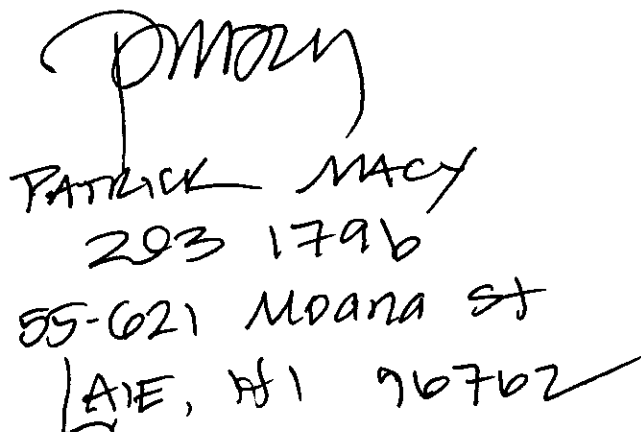 PMacy
PATRICK MACY
293 1796
55-621 Moana St
LAIE, HI 96762